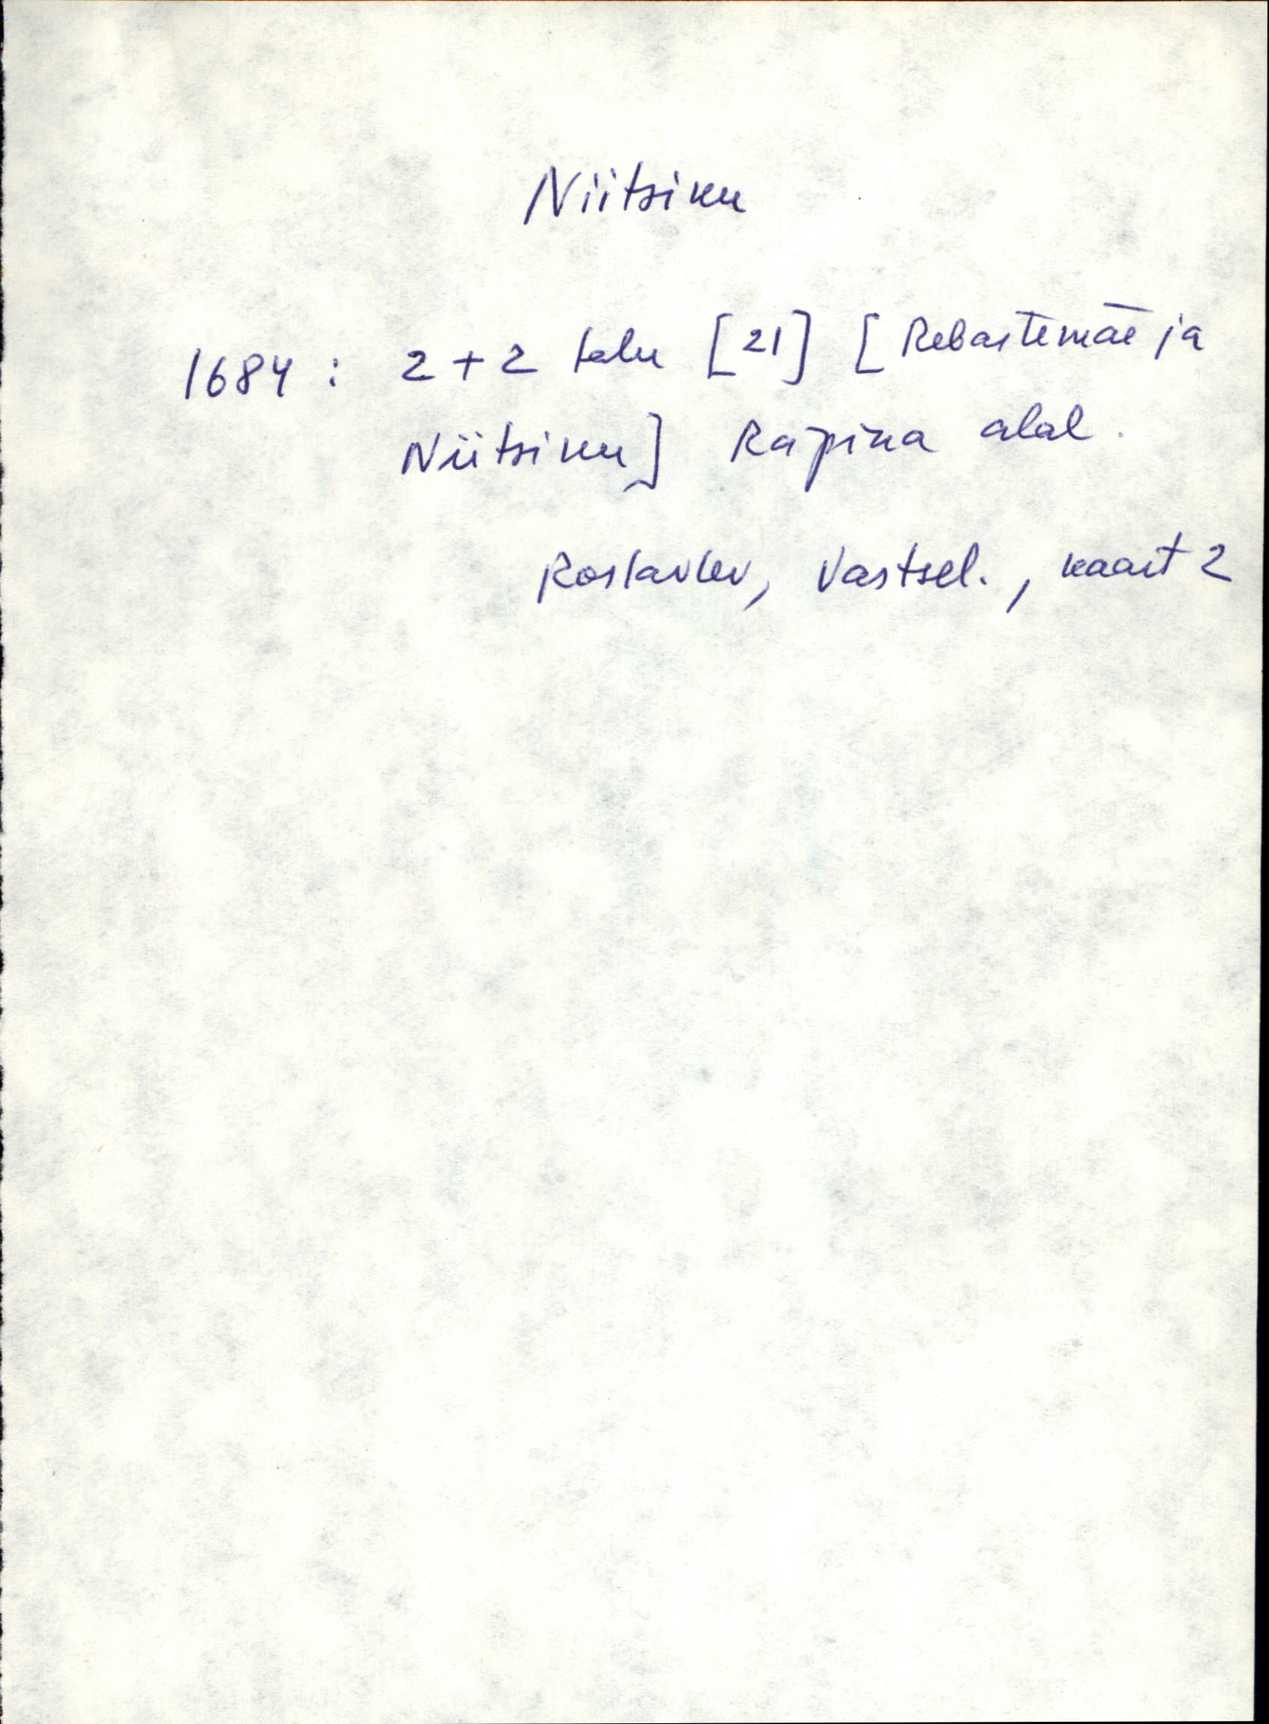 Niitsiku
1684 : 2 + 2 talu [21] [Rebastemäe ja
Niitsiku] Räpina alal.
Roslavlev, Vastsel., kaart 2